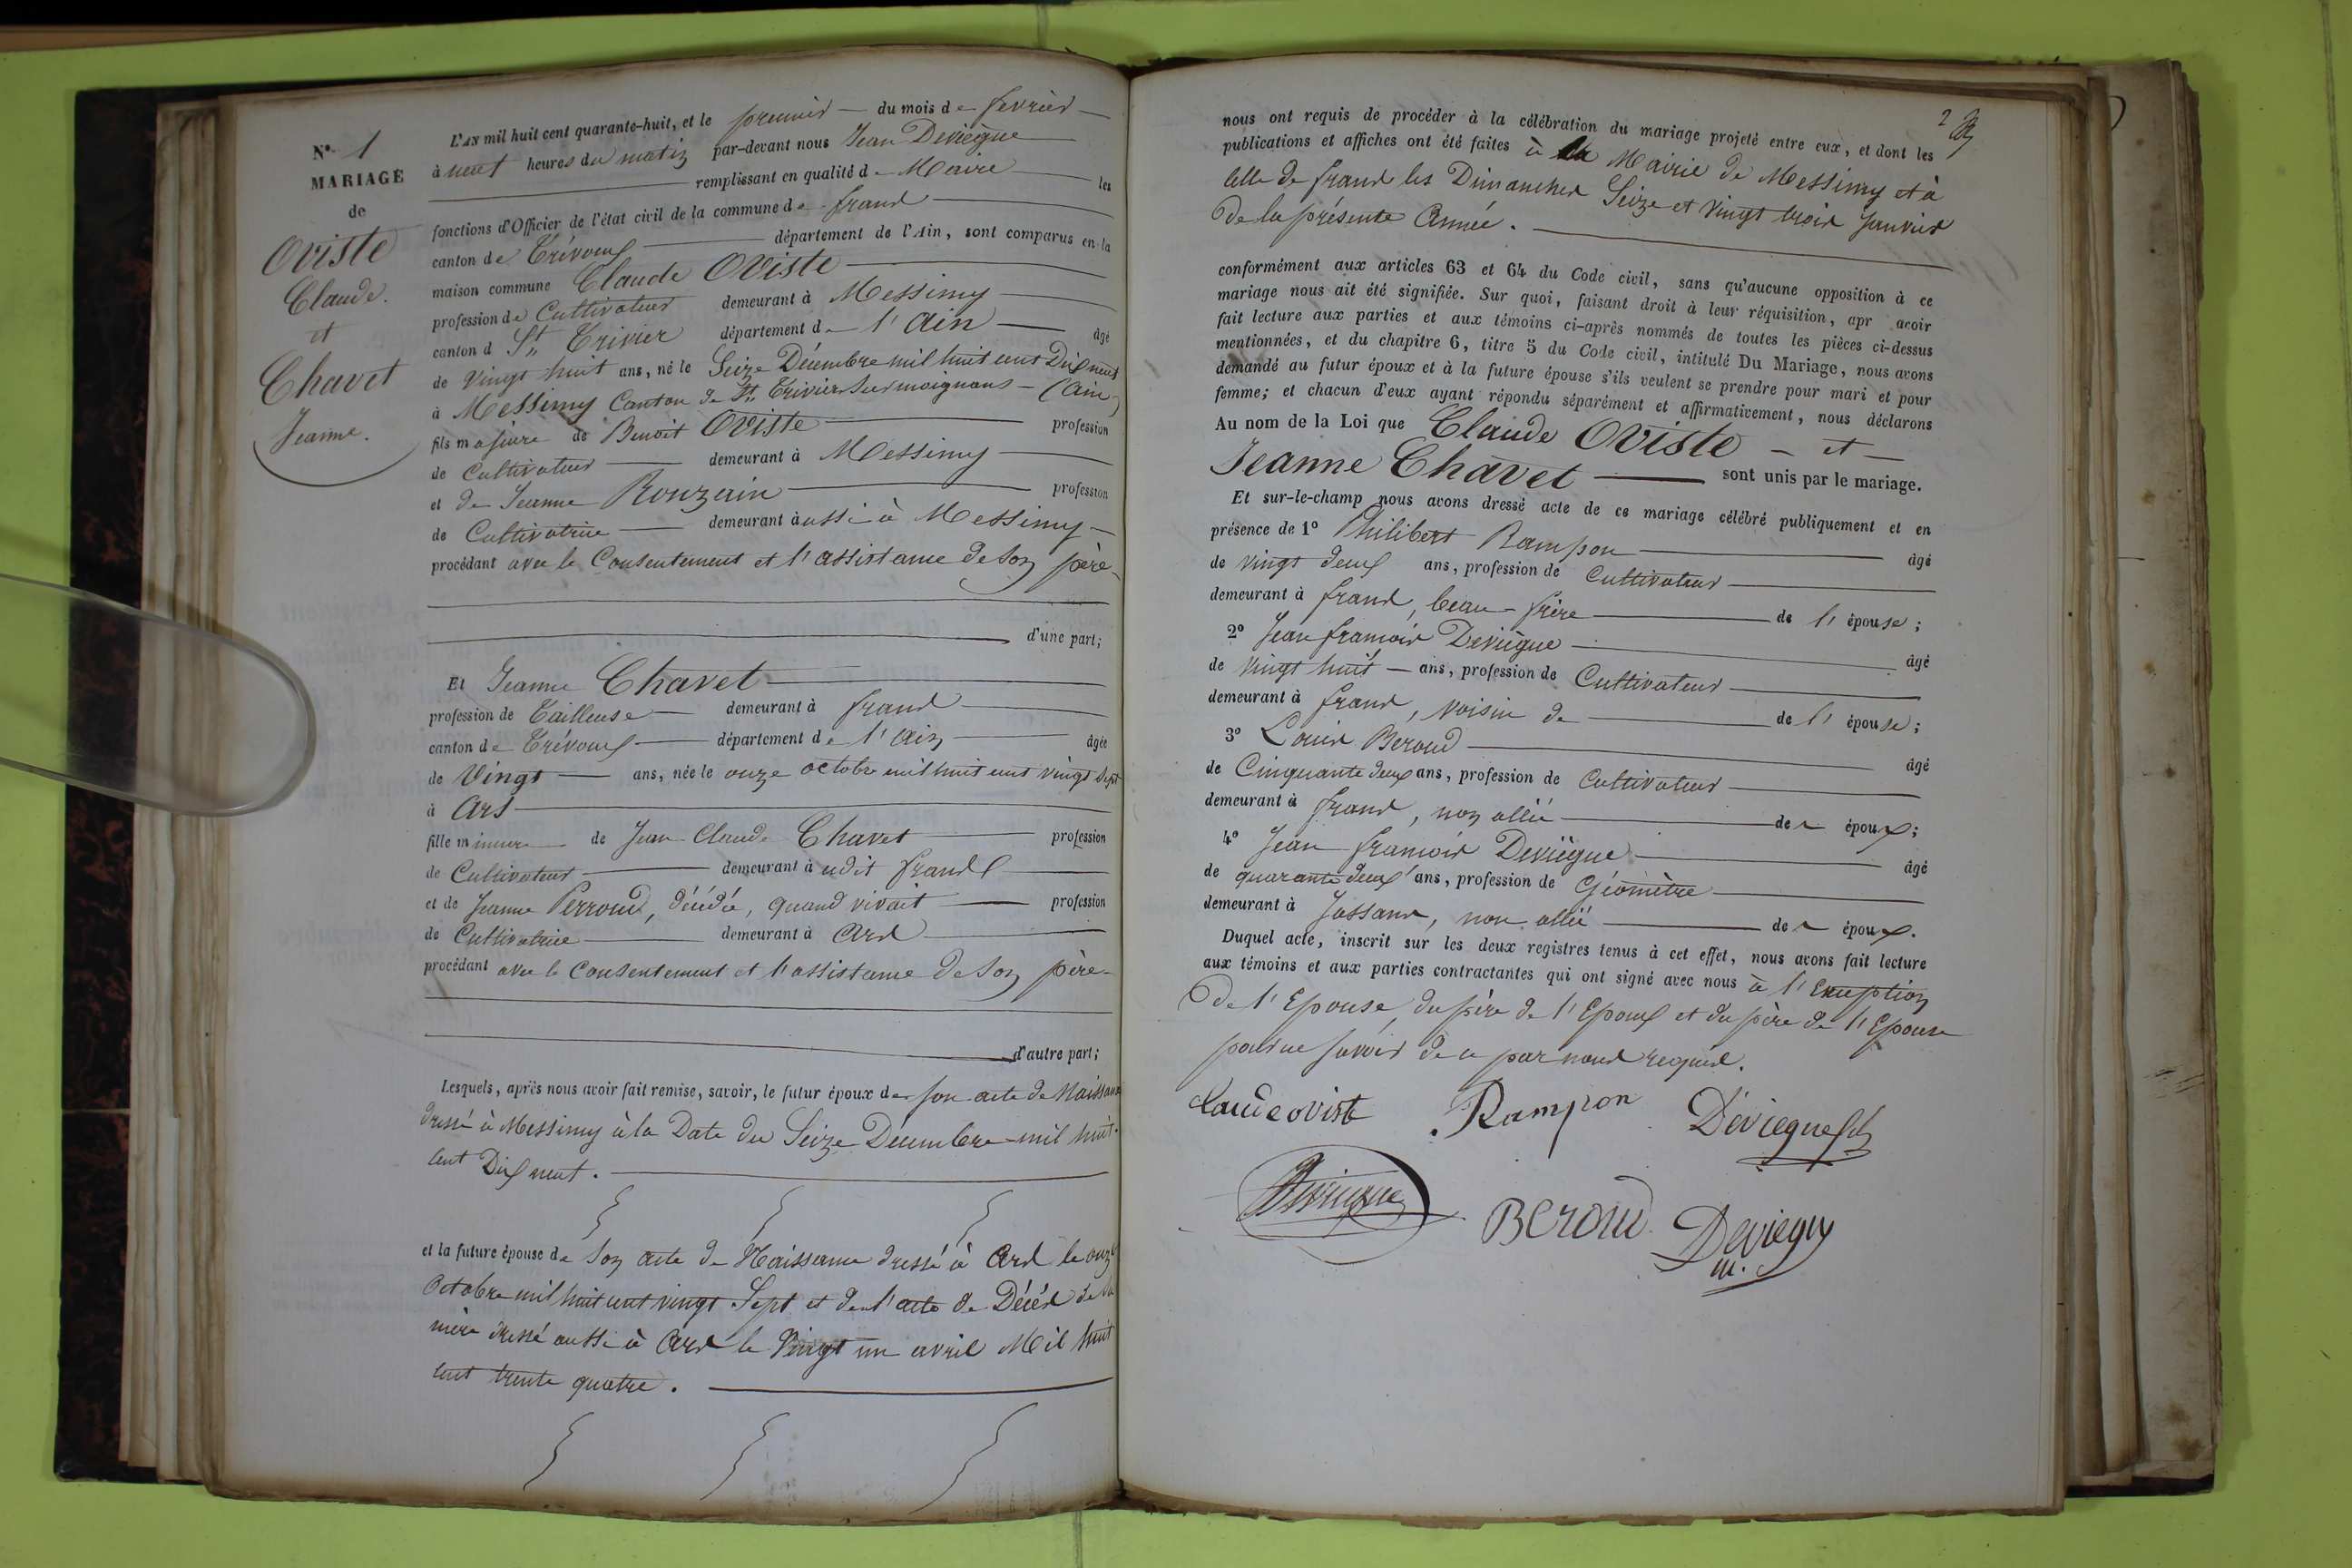 N.° 1
MARIAGE
de
Oviste
Claude.
et
Chavet
Jeanne.
L'AN mil huit cent quarante-huit, et le premier du mois de fevrier
à neuf heures du matin par-devant nous Jean Deviègue
remplissant en qualité de Maire les
fonctions d'Officier de l'état civil de la commune de frans
canton de Trévoux département de l'Ain, sont comparus en la
maison commune Claude Oviste
profession de Cultivateur demeurant à Messimy
canton d St Trivier département de l'Ain âgé
de Vingt huit ans, né le Seize Décembre mil huit cent Dix neuf
à Messimy Canton de St Trivier Sur moignans (Ain)
fils majeure de Benoit Oviste profession
de Cultivateur demeurant à Messimy
et de Jeanne Rouzain profession
de Cultivatrice demeurant aussi à Messimy
procédant avec le Consentement et l'assistance de Son père
d'une part;
Et Jeanne Chavet
profession de Tailleuse demeurant à frans
canton de Trévoux département de l'Ain âgée
de Vingt ans, née le onze octobre mil huit cent vingt sept
à Ars
fille mineure de Jean Claude Chavet profession
de Cultivateur demeurant audit frans
et de Jeanne Perroud, décédée, quand vivait profession
de Cultivatrice demeurant à Ars
procédant avec le Consentement et l'assistance de Son père
d'autre part;
Lesquels, après nous avoir fait remise, savoir, le futur époux de son acte de Naissance
dressé à Messimy à la Date du Seize Décembre mil huit
cent Dix neuf.
et la future épouse de Son acte de Naissance dressé à Ars le onze
Octobre mil huit cent vingt Sept et de l'acte de Décès de la
mère dressé aussi à Ars le Vingt un avril Mil huit
cent trente quatre.
2
nous ont requis de procéder à la célébration du mariage projeté entre eux, et dont les
publications et affiches ont été faites à la Mairie de Messimy et à
Celle de frans les Dimanches Seize et Vingt trois Janvier
De la présente Année.
conformément aux articles 63 et 64 du Code civil, sans qu'aucune opposition à ce
mariage nous ait été signifiée. Sur quoi, faisant droit à leur réquisition, apr avoir
fait lecture aux parties et aux témoins ci-après nommés de toutes les pièces ci-dessus
mentionnées, et du chapitre 6, titre 5 du Code civil, intitulé Du Mariage, nous avons
demandé au futur époux et à la future épouse s'ils veulent se prendre pour mari et pour
femme; et chacun d'eux ayant répondu séparément et affirmativement, nous déclarons
Au nom de la Loi que Claude Oviste et
Jeanne Chavet sont unis par le mariage.
Et sur-le-champ nous avons dressé acte de ce mariage célébré publiquement et en
présence de 1° Philibert Rampon âgé
de vingt deux ans, profession de Cultivateur
demeurant à frans, beau-frère de l'épouse;
2° Jean françois Deviègue âgé
de Vingt huit ans, profession de Cultivateur
demeurant à frans, voisin de de l'épouse;
3° Louis Beroud âgé
de Cinquante deux ans, profession de Cultivateur
demeurant à frans, non allié des époux;
4° Jean françois Deviègue âgé
de quarante deux ans, profession de Géomètre
demeurant à Jassans, non allié des époux.
Duquel acte, inscrit sur les deux registres tenus à cet effet, nous avons fait lecture
aux témoins et aux parties contractantes qui ont signé avec nous à l'Exception
De l'Epouse, du père de l'Epoux et du père de l'Epouse
pour ne savoir de ce par nous requis.
Claude oviste Rampon Déviegue fils
Beroud Deviegue
m.